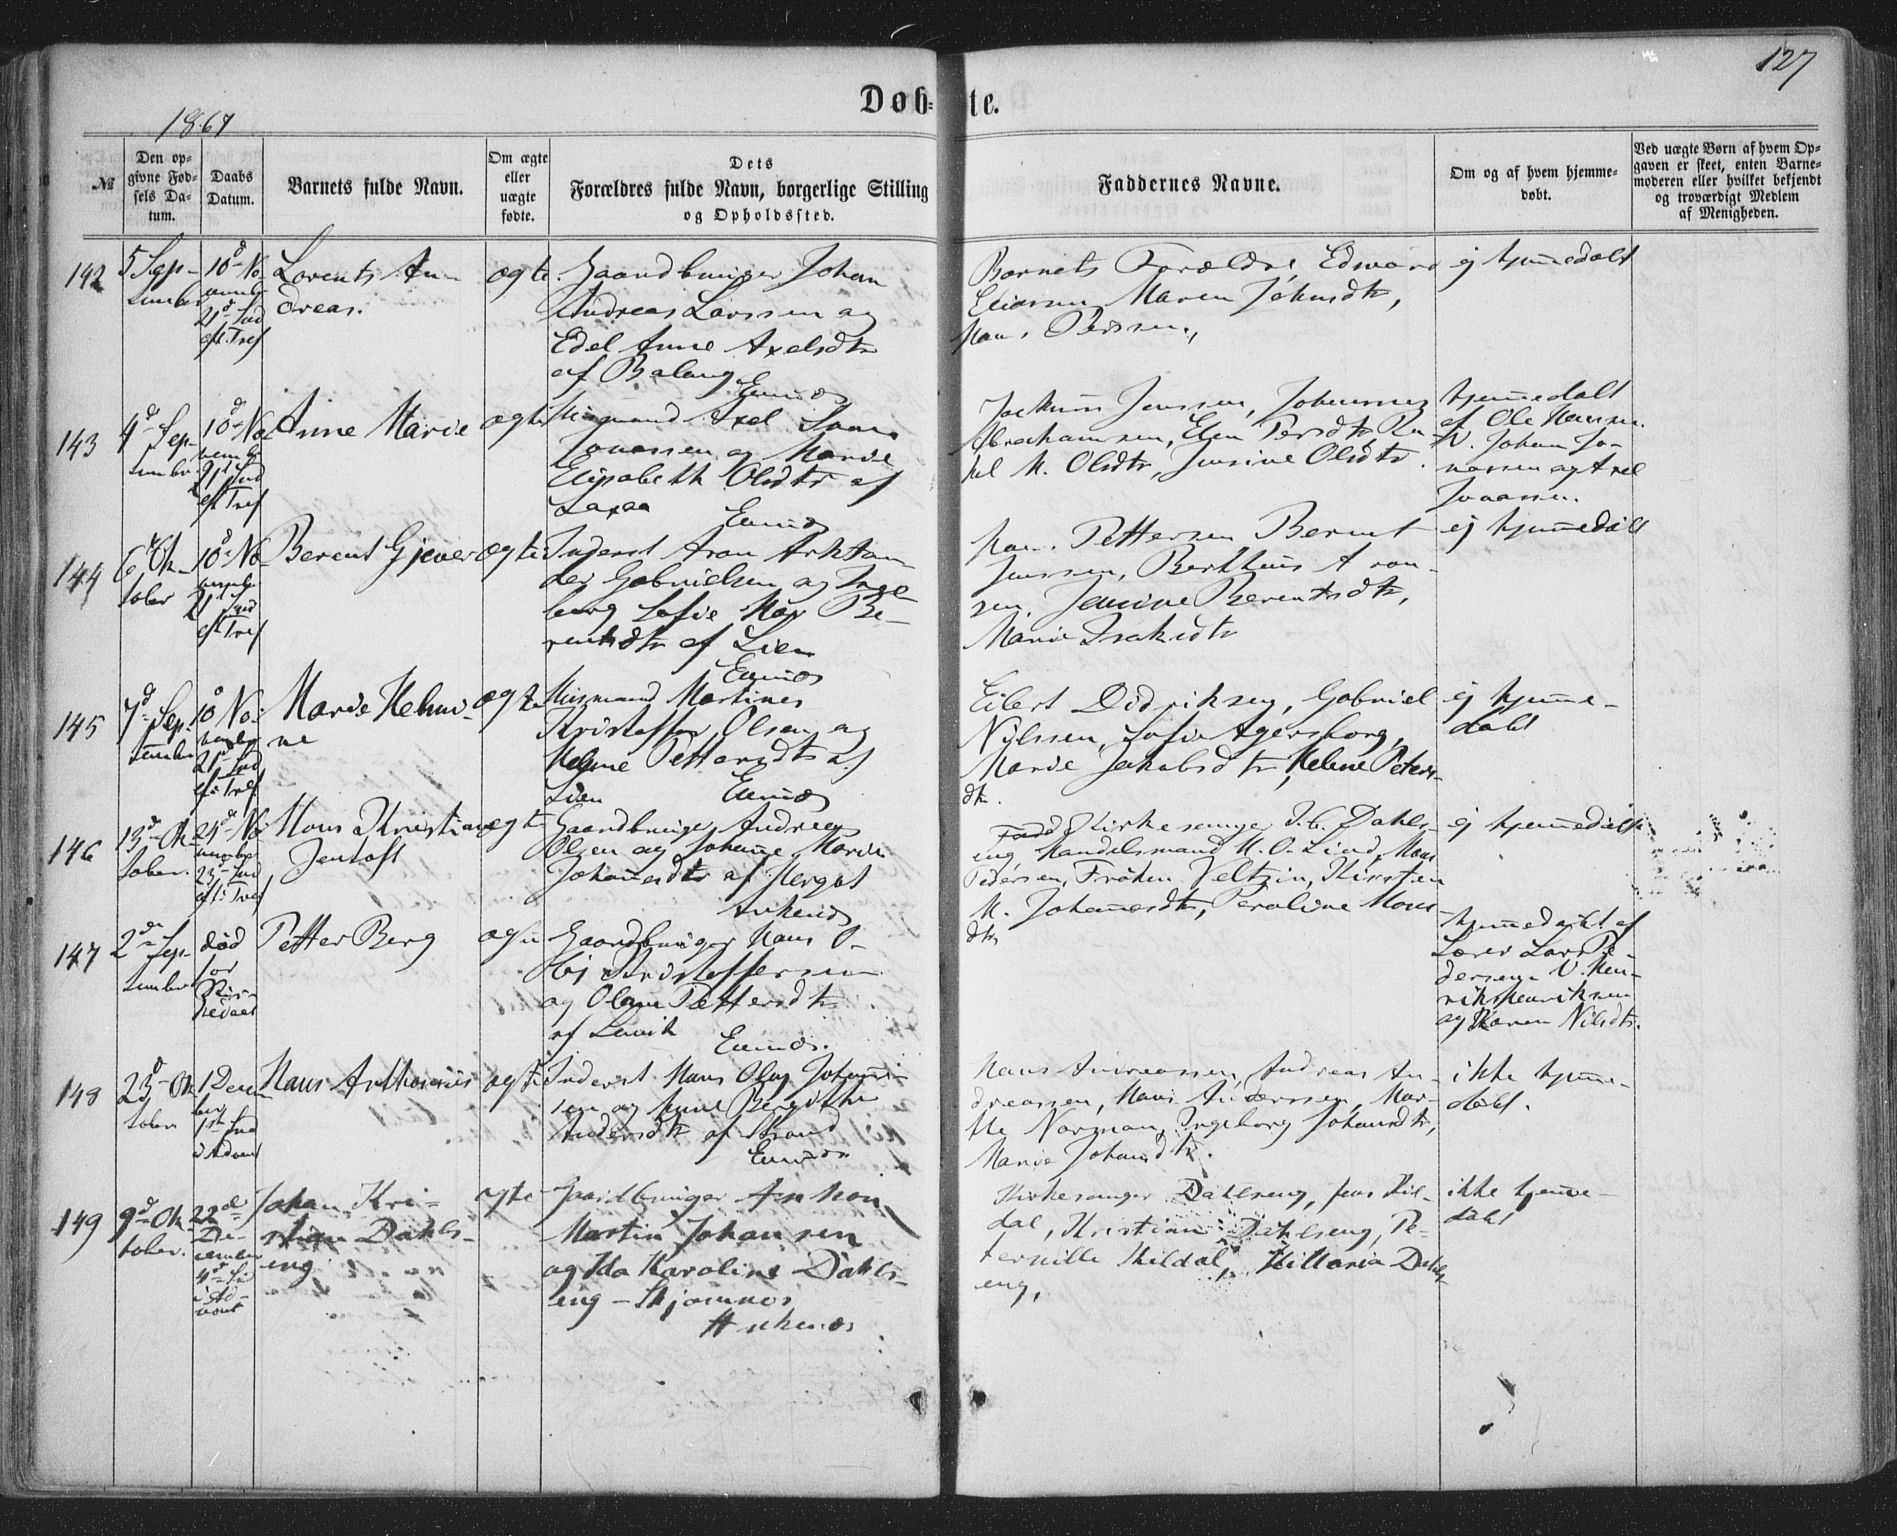 127
Døb-te.
1867
№
Den op-
givne Fød-
sels Da-
tum.
Daabs
Datum.
Barnets fulde Navn.
Om ægte
eller
uægte
fødte.
Dets
Forældres fulde Navn, borgerlige Stilling
og Opholdssted.
Faddernes Navne.
Om og af hvem hjemme-
døbt.
Ved uægte Børn af hvem Op-
gaven er skeet, enten Barne-
moderen eller hvilket bekjendt
og troværdigt Medlem
af Menigheden.
142
5 Sep-
tember
10d No-
21d
eft. Tref
Lorents An-
dreas.
ægte
Gaardbruger Johan
Andreas Larssen og
Edel Anne Axelsdtr
af Balang
Barnets Forældre, Edward
Eliassen Maren Johnsdtr,
Hans Perssen.
ej hjemmedøbt
143
4d Sep-
tember
10d No-
vembr
21d
eft Tref
Anne Marie
ægte
Husmand Axel
Jonassen og Marie
Elisabeth Olsdtr af
Laxaa
Joakim Jenssen, Johannes
Abrahamsen, Elen Persdtr Ra-
kel M. Olsdtr, Jensine Olsdtr.
hjemmedøbt
af Ole Hansen.
V. Johan Jo-
nassen og Axel
Jonassen.
144
6 Ok-
tober
10d No-
21d
eft Tref
Berent Gjæver
ægte
Inderst Aron
Gabrielsen og Inge-
borg Sofie Be-
rentsdtr af Lien
Pettersen Berent
Jenssen, Berthius Aron-
sen, Jensine Berentsdtr,
Marie Isaksdtr
ej hjemmedøbt
145
7d Sep-
tember
10 No-
21d
eft: Tref
Marie Helmi-
ne
ægte
Husmand Martines
Kristoffer Olsen og
Petersdtr af
Lien
Eilert Didriksen, Gabriel
Nilssen, Sofie Agersborg,
Marie Jakobsdtr, Helene Peters-
dtr.
ej hjemme-
døbt
146
13d Ok-
tober.
24d No-
23d
eft: Tref
Hans Kristian
Jentoft
ægte
Gaardbruger Andreas
Olsen og Johanne Marie
Johannesdtr af Hergot
Ankenes
Kirkesanger J. C. Dahls-
eng Handelsmand M. O. Lind, Hans
Pedersen, Frøken Veltzin, Kirsten
M. Johannesdtr, Peroline Hans-
dtr
ej hjemmedøbt
147
2den Sep-
tember
død
før
Petter Berg
ægte
Gaardbruger Hans
Kristoffersen
og Olane Pettersdtr
af Lenvik
hjemmedøbt af
Lærer Lars Pe-
dersen. V. Hen-
rik Henriksen
og Karen Nilsdtr.
148
23d Ok-
tober
1 Decem-
ber
i Advent
Hans Arthonius
ægte
Inderst Hans Olag Johan-
sen og Anne Bergitte
Andersdtr af Strand
Hans Andreassen, Andreas An-
dreassen, Hans Anderssen, Mar-
the Norman, Ingeborg Johansdtr,
Marie Johansdtr.
ikke hjemme-
døbt.
149
9d Ok-
tober.
22de
De-
cember
4de
i Ad-
vent
Johan Kri-
stian Dahls-
eng
ægte
Gaardbruger Anthon
Martin Johansen
og Ida Karoline Dahls-
eng - Skjomnes
Ankenes
Kirkesanger Dahlseng, Jens Kil-
dal, Kristian Dahlseng, Pe-
ternille Kildal, Dahls-
eng,
ikke hjemme-
døbt